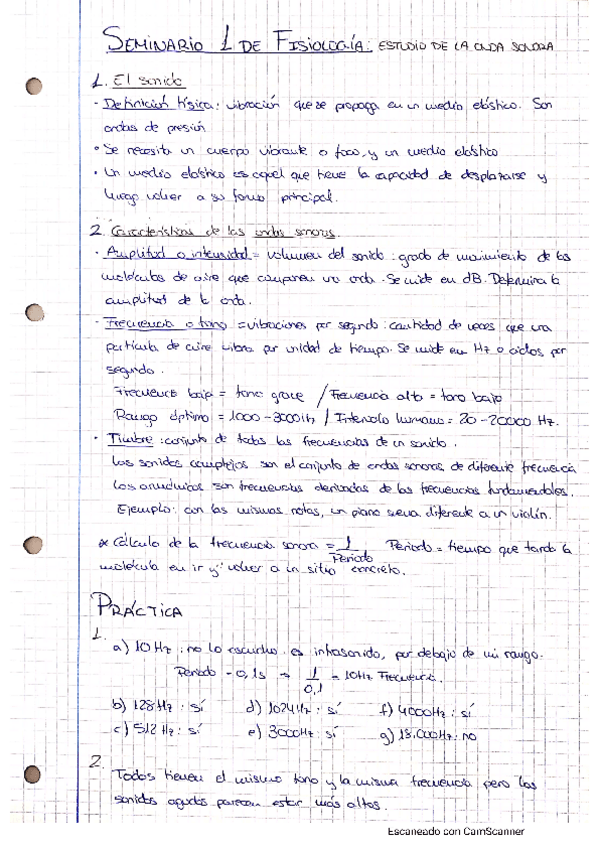 SEMINARIO 1 DE FISIOLOGÍA: ESTUDIO DE LA ONDA SONORA
1. El sonido
· Definición física: vibración que se propaga en un medio elástico. Son
ondas de presión
· Se necesita un cuerpo vibrante o foco, y un medio elástico
· Un medio elástico es aquel que tiene la capacidad de desplazarse y
luego volver a su forma principal.
2. Características de las ondas sonoras.
· Amplitud o intensidad = volumen del sonido: grado de movimiento de las
moléculas de aire que componen una onda. Se mide en dB. Determina la
amplitud de la onda.
· Frecuencia o tono = vibraciones por segundo: cantidad de veces que una
partícula de aire vibra por unidad de tiempo. Se mide en Hz o ciclos por
segundo.
Frecuencia baja = tono grave / Frecuencia alta = tono bajo
Rango óptimo = 1000-3000Hz / Intervalo humano = 20-20000 Hz.
· Timbre: conjunto de todas las frecuencias de un sonido.
Los sonidos complejos son el conjunto de ondas sonoras de diferente frecuencia
Los armónicos son frecuencias derivadas de las frecuencias fundamentales.
Ejemplo: con las mismas notas, un piano suena diferente a un violín.
* Cálculo de la frecuencia sonora = 1/Periodo Periodo = tiempo que tarda la
molécula en ir y volver a un sitio concreto.
PRÁCTICA
1.
a) 10Hz: no lo escucho. es infrasonido, por debajo de mi rango.
Periodo - 0,1s → 1/0,1 = 10Hz Frecuencia.
b) 128Hz: sí d) 1024Hz: sí f) 4000Hz: sí
c) 512 Hz: sí e) 3000Hz: sí g) 18.000Hz: no
2.
Todos tienen el mismo tono y la misma frecuencia pero los
sonidos agudos parecen estar más altos.
Escaneado con CamScanner